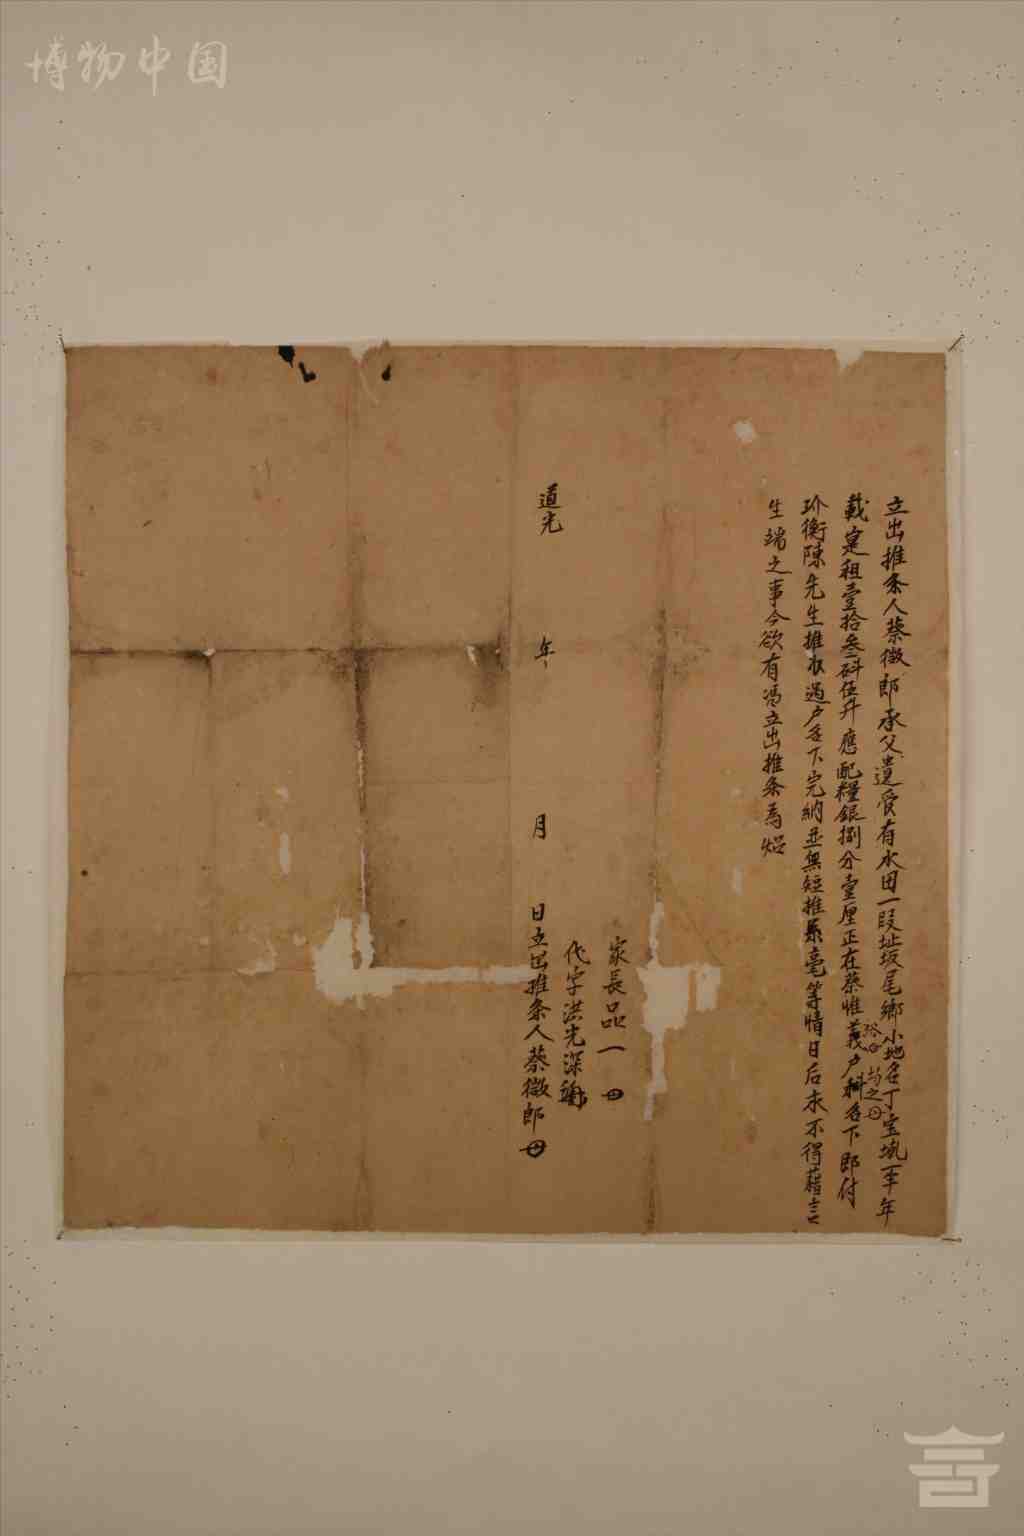 博物中国
立出推条人蔡徵郎承父遺受有水田一段址坂尾鄉小地名丁宝坑一年
載寔租壹拾叁斛伍升應配糧銀捌分壹厘正在蔡惟義户科名下即付
玠衡陳先生推收過户名下完納並無短推系毫等情日后永不得藉言
生端之事今欲有馮立出推条為炤
家長品一
代字洪光深
道光 年 月 日立出推条人蔡徵郎